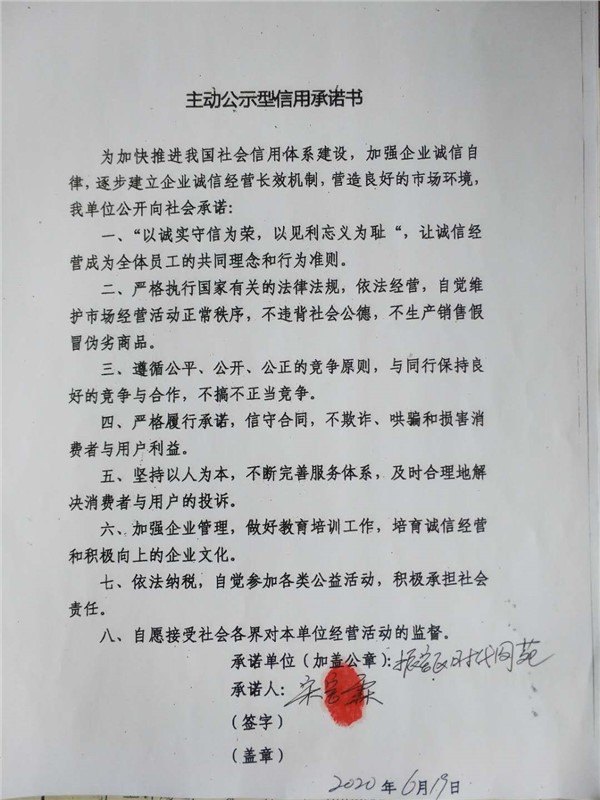 主动公示型信用承诺书
为加快推进我国社会信用体系建设，加强企业诚信自
律，逐步建立企业诚信经营长效机制，营造良好的市场环境，
我单位公开向社会承诺：
一、“以诚实守信为荣，以见利忘义为耻“，让诚信经
营成为全体员工的共同理念和行为准则。
二、严格执行国家有关的法律法规，依法经营，自觉维
护市场经营活动正常秩序，不违背社会公德，不生产销售假
冒伪劣商品。
三、遵循公平、公开、公正的竞争原则，与同行保持良
好的竞争与合作，不搞不正当竞争。
四、严格履行承诺，信守合同，不欺诈、哄骗和损害消
费者与用户利益。
五、坚持以人为本，不断完善服务体系，及时合理地解
决消费者与用户的投诉。
六、加强企业管理，做好教育培训工作，培育诚信经营
和积极向上的企业文化。
七、依法纳税，自觉参加各类公益活动，积极承担社会
责任。
八、自愿接受社会各界对本单位经营活动的监督。
承诺单位（加盖公章）：
承诺人：宋
（签字）
（盖章）
2020 年 6月19日